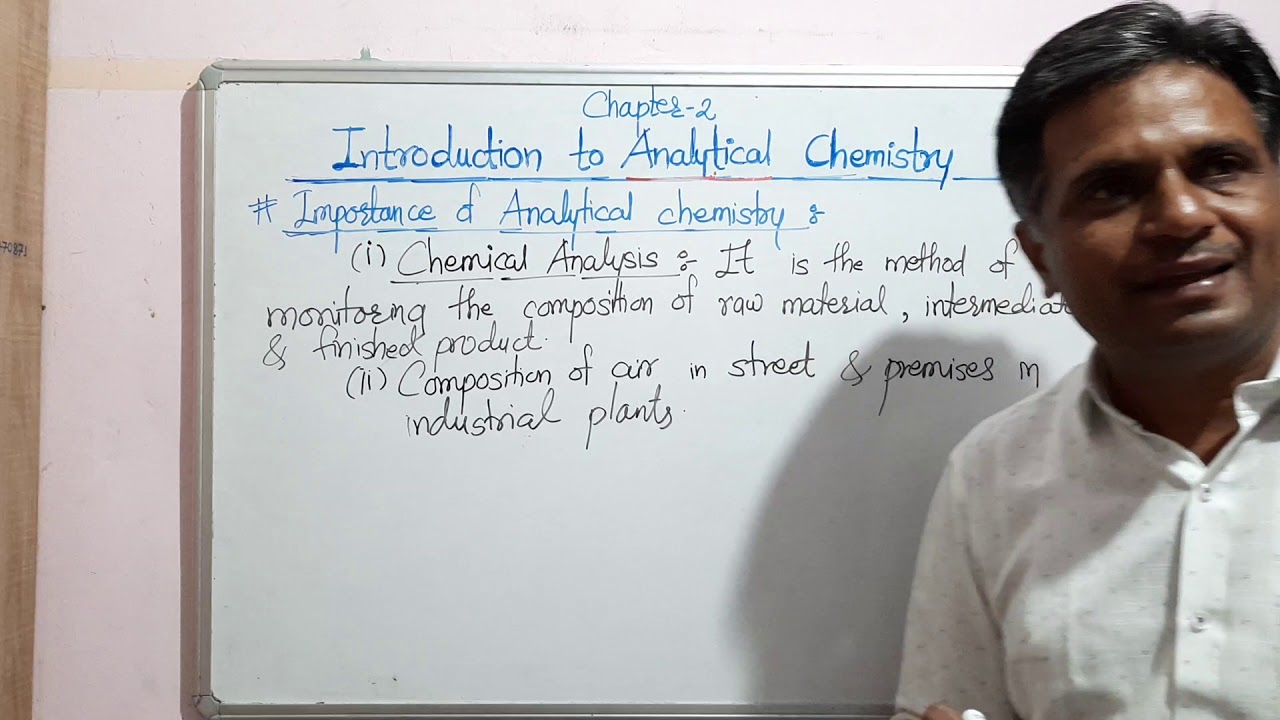 Chapter-2
Introduction to Analytical Chemistry
# Importance of Analytical chemistry :
(i) Chemical Analysis : It is the method of
monitoring the composition of raw material, intermediat
& finished product.
(ii) Composition of air in street & premises in
industrial plants.
70871